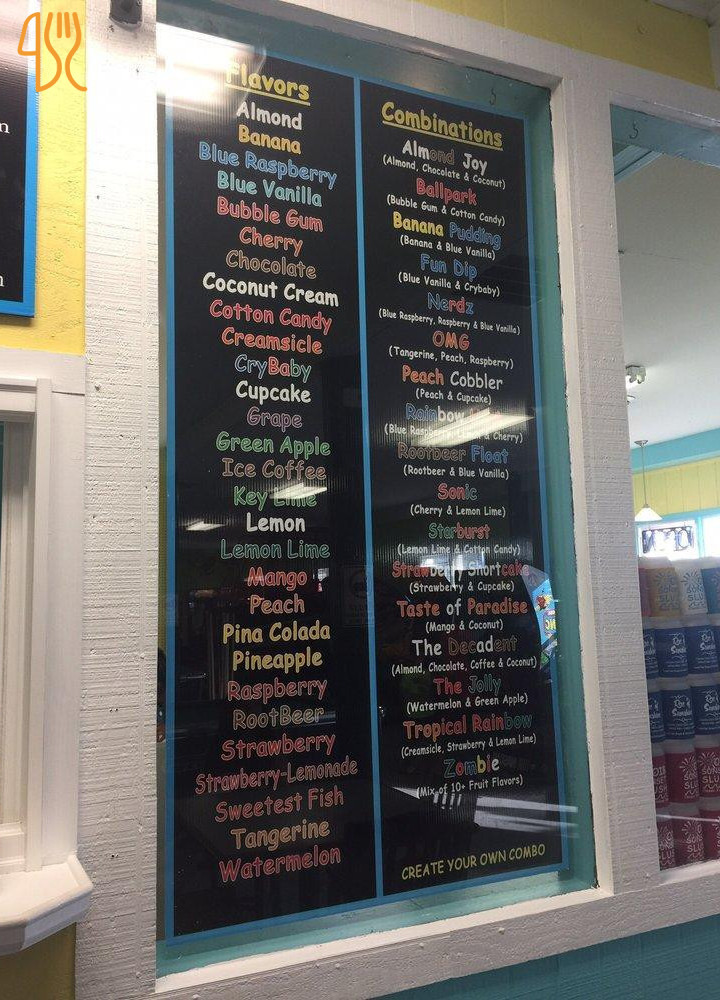 Flavors
Almond
Banana
Blue Raspberry
Blue Vanilla
Bubble Gum
Cherry
Chocolate
Coconut Cream
Cotton Candy
Creamsicle
CryBaby
Cupcake
Grape
Green Apple
Ice Coffee
Key Lime
Lemon
Lemon Lime
Mango
Peach
Pina Colada
Pineapple
Raspberry
RootBeer
Strawberry
Strawberry-Lemonade
Sweetest Fish
Tangerine
Watermelon
Combinations
Almond Joy
(Almond, Chocolate & Coconut)
Ballpark
(Bubble Gum & Cotton Candy)
Banana Pudding
(Banana & Blue Vanilla)
Fun Dip
(Blue Vanilla & Crybaby)
Nerdz
(Blue Raspberry, Raspberry & Blue Vanilla)
OMG
(Tangerine, Peach, Raspberry)
Peach Cobbler
(Peach & Cupcake)
Rainbow
(Blue Raspberry & Cherry)
Rootbeer Float
(Rootbeer & Blue Vanilla)
Sonic
(Cherry & Lemon Lime)
Starburst
(Lemon Lime & Cotton Candy)
Strawberry Shortcake
(Strawberry & Cupcake)
Taste of Paradise
(Mango & Coconut)
The Decadent
(Almond, Chocolate, Coffee & Coconut)
The Jolly
(Watermelon & Green Apple)
Tropical Rainbow
(Creamsicle, Strawberry & Lemon Lime)
Zombie
(Mix of 10+ Fruit Flavors)
CREATE YOUR OWN COMBO